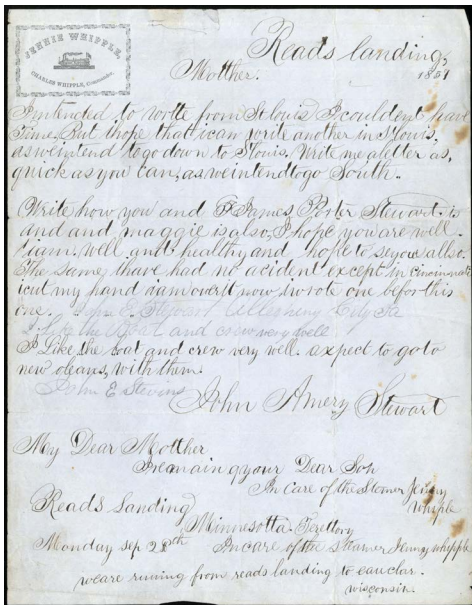 JENNIE WHIPPLE,
CHARLES WHIPPLE, Commander.
Reads landing,
Motther. 1857
I intended to write from St louis I couldent have
time, But i hope that i can write another in St louis,
as we intend to go down to St louis. Write me a letter as,
quick as you can, as we intend to go South.
Write how you and James Porter Stewart. is
and and maggie is also, I hope you are well.
i am, well and healthy and hope to se you all so.
The same, i have had no acident except in Cincinnati
i cut my hand i am over it now i wrote one befor this
one. John E. Stewart Allegheny City Pa
I Like the Boat and crew very well
I Like the boat and crew very well. a xpect to go to
new oleans, with them.
John E Stevins
John Amery Stewart
My Dear Motther
I remain your Dear Son
In Care of the Stamer Jenny
Whiple
Reads Landing
Minnesotta. Terettory
Monday sep 28th In care of the Steamer Jenny whipple
we are runing from reads landing to eauclar.
wisconsin.